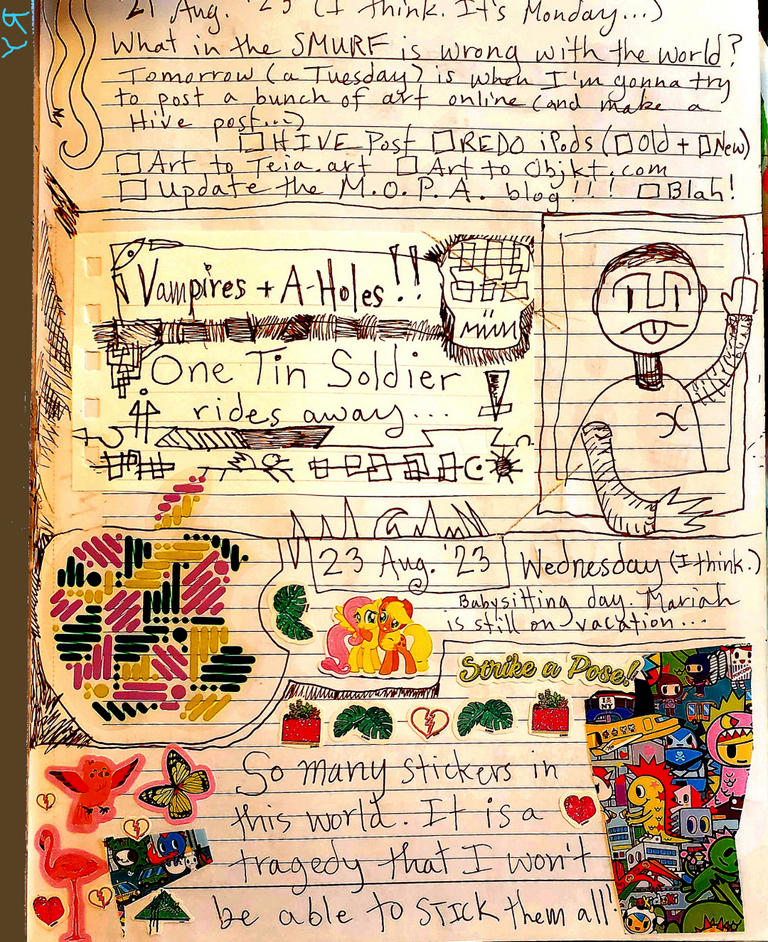 21 Aug. '23 (I think. It's Monday...)
What in the SMURF is wrong with the world?
Tomorrow (a Tuesday) is when I'm gonna try
to post a bunch of art online (and make a
Hive post...)
☐ HIVE Post ☐ REDO iPods (☐ Old + ☐ New)
☐ Art to Teia.art ☐ Art to Objkt.com
☐ Update the M.O.P.A. blog!!! ☐ Blah!
Vampires + A-Holes!!
One Tin Soldier
rides away...
23 Aug. '23 Wednesday (I think.)
Babysitting day. Mariah
is still on vacation...
Strike a Pose!
So many stickers in
this world. It is a
tragedy that I won't
be able to STICK them all!